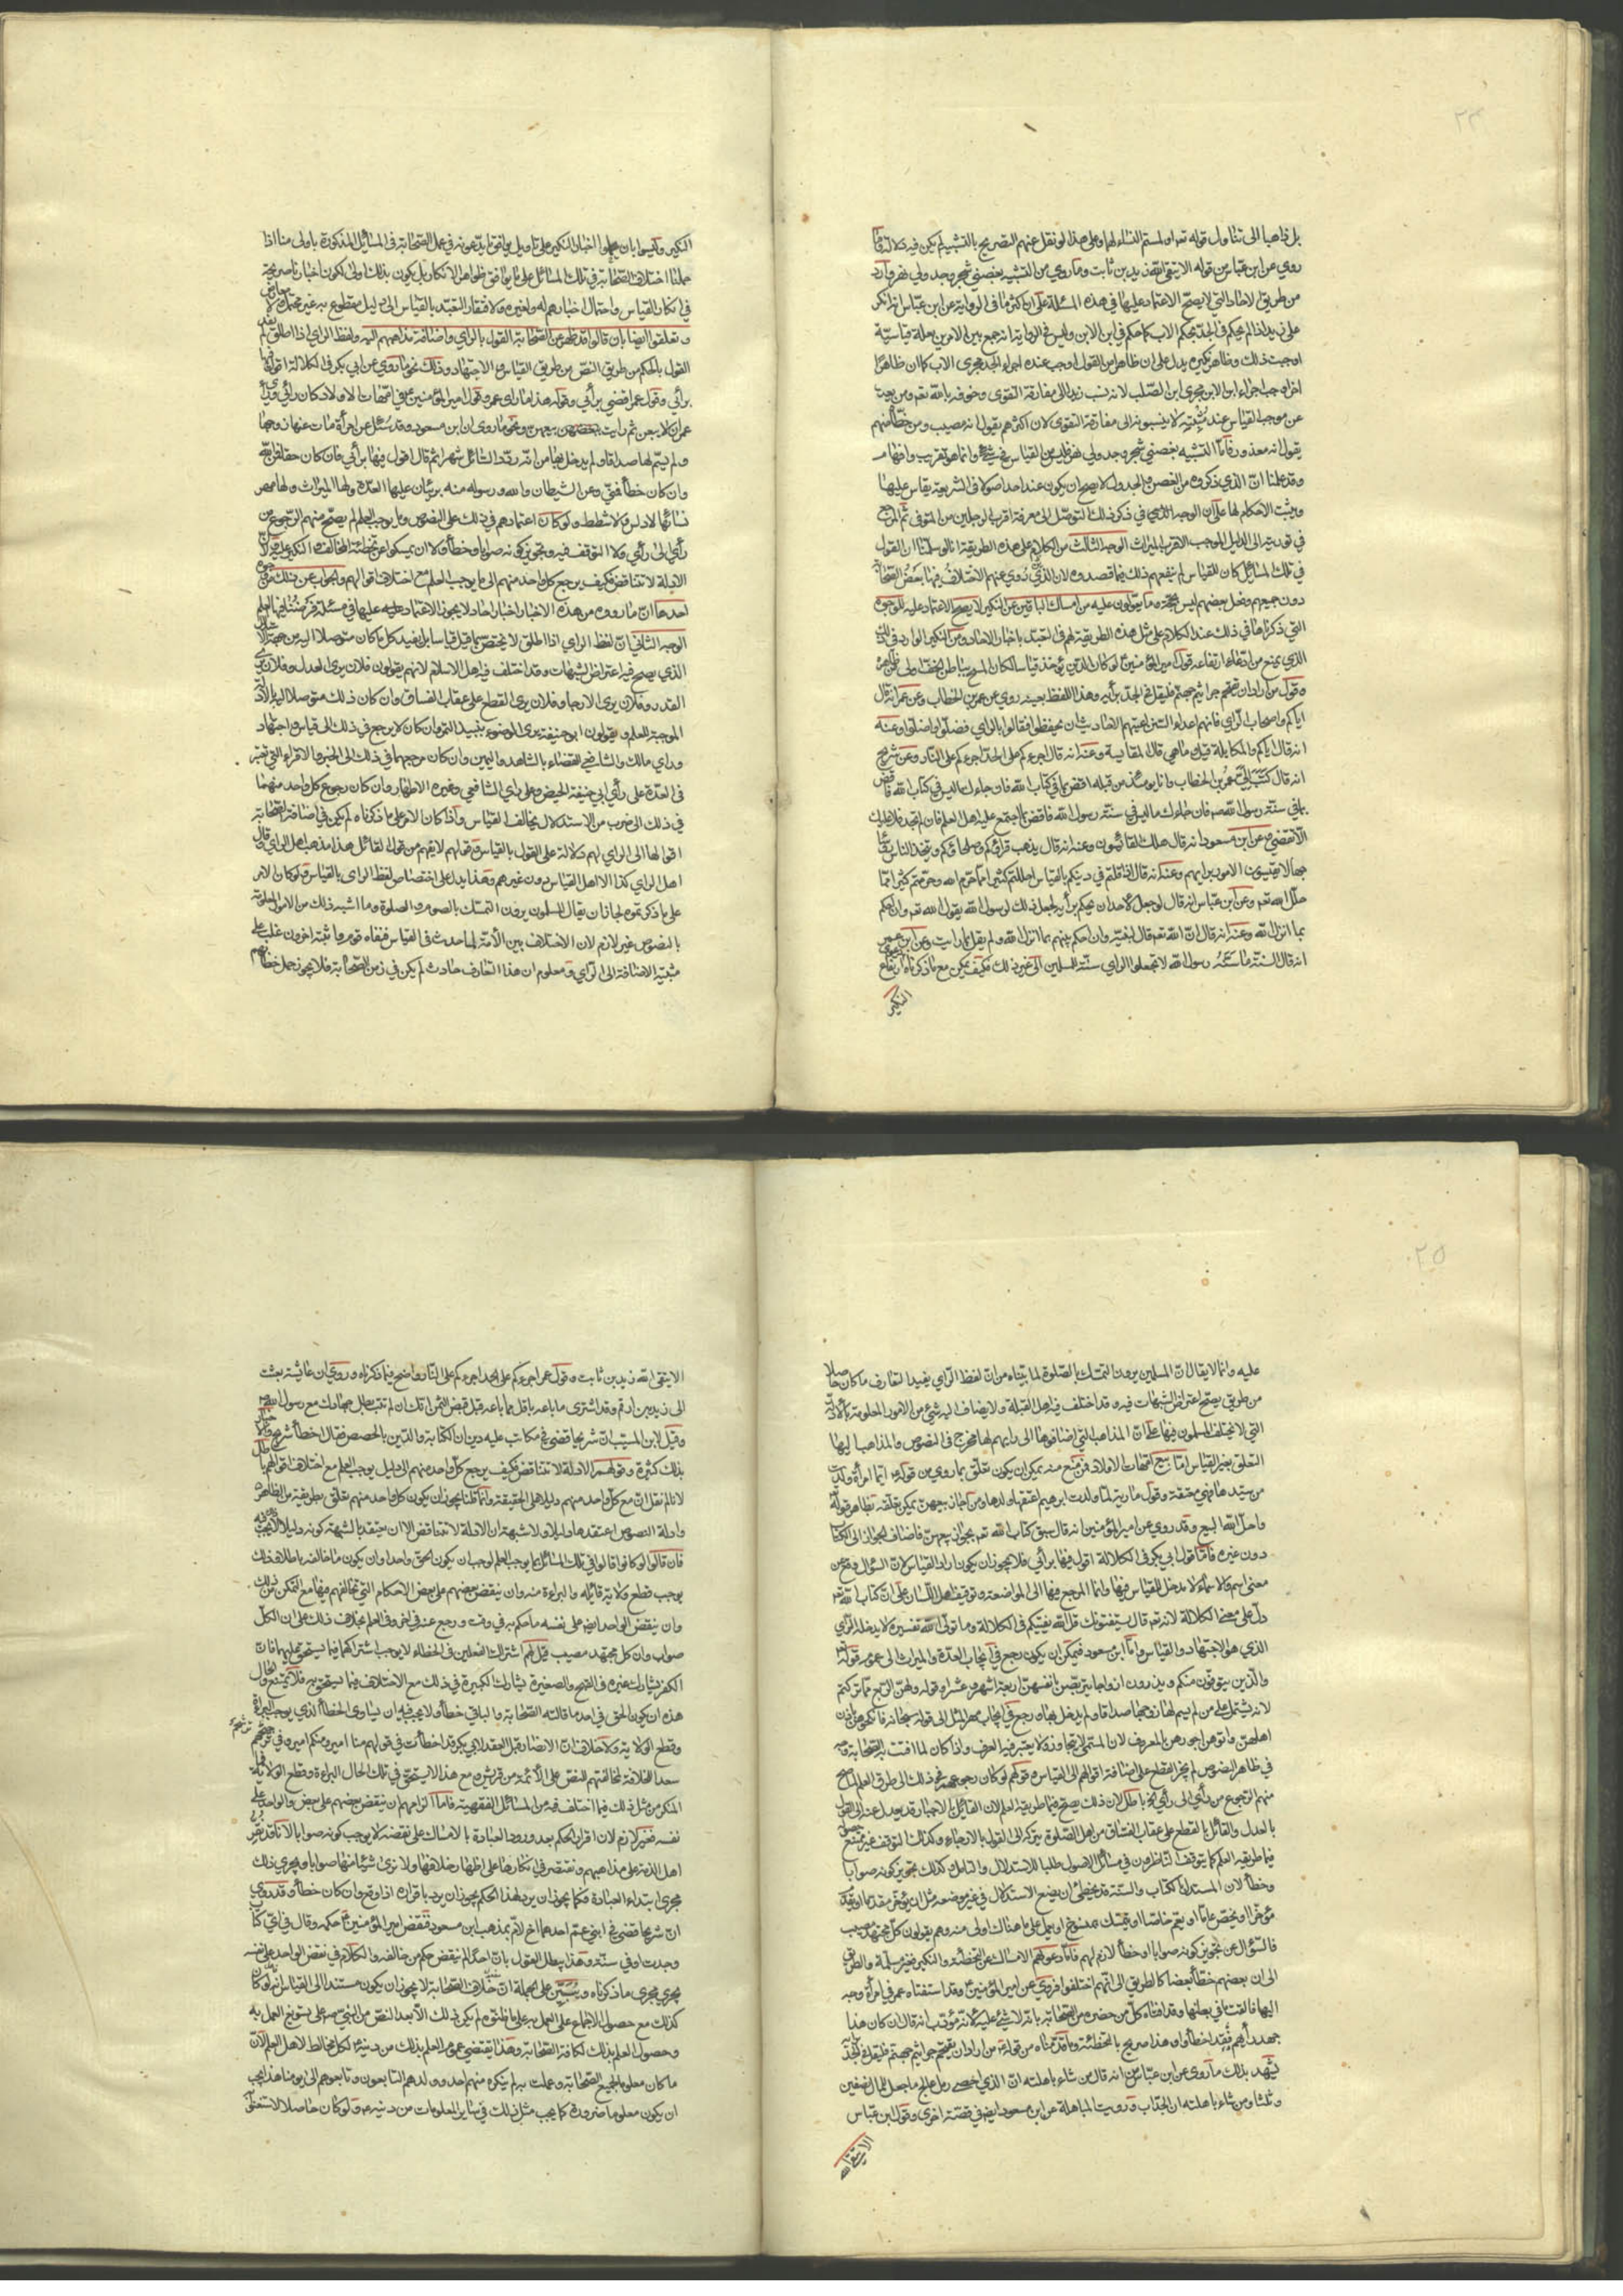 ٢٣
بل ذاهبا الى تناول قوله تعم او لمستم النساء لها وعلى هذا لو نقل عنهم التصريح بالتشبيه لم يكن فيه دلالة فاما
روي عن ابن عباس من قوله الا يتقي الله زيد بن ثابت وما روي من التشبيه بغصني شجر وجدولي نهر فوارد
من طريق الاحاد التي لا يصح الاعتماد عليها في هذه المسئلة على ان اكثر ما في الرواية عن ابن عباس انه انكر
على زيد اذ لم يحكم في الجد بحكم الاب كما حكم في ابن الابن وليس في الرواية انه جمع بين الامرين بعلة قياسية
اوجبت ذلك وظاهر نكيره يدل على ان ظاهرا من القول اوجب عنده اجراء الجد مجرى الاب كما ان ظاهرا
اخر اوجب اجراء ابن الابن مجرى ابن الصلب لانه نسب زيدا الى مفارقة التقوى وخوفه بالله تعم ومن يعدل
عن موجب القياس عند مثبتيه لا ينسبونه الى مفارقة التقوى لان اكثرهم يقول انه مصيب ومن خطأه منهم
يقول انه معذور فاما التشبيه بغصني شجر وجدولي نهر فليس من القياس في شيء وانما هو تقريب وافهام
وقد علمنا ان الذي ذكروه من الغصن والجدول لا يصح ان يكون عند احد اصولا في الشريعة يقاس عليها
ويثبت الاحكام لها على ان الوجه في ذكر ذلك التوصل الى معرفة اقرب الرجلين من المتوفى ثم الرجوع
في توريثه الى الدليل الموجب الاقرب الميراث الوجه الثالث من الكلام على هذه الطريقة انا لو سلمنا ان القول
في تلك المسائل كان للقياس لم ينفعهم ذلك فيما قصدوه لان الذي روي عنهم الاختلاف فيها بعض الصحابة
دون جميعهم وفعل بعضهم ليس بحجة وما يعولون عليه من امساك الباقين عن النكير لا يصح الاعتماد عليه للوجوه
التي ذكرناها في ذلك عند الكلام على مثل هذه الطريقة لهم في التعبد باخبار الاحاد ومن النكير الوارد في ذلك
الذي يمنع من ادعاء ارتفاعه قول امير المؤمنين ع لو كان الدين يؤخذ قياسا لكان المسح بباطن الخف اولى من ظاهره
وقوله من اراد ان يتقحم جراثيم جهنم فليقل في الجد برأيه وهذا اللفظ بعينه روي عن عمر بن الخطاب وعن عمر انه قال
اياكم واصحاب الراي فانهم اعداء السنن اعيتهم الاحاديث ان يحفظوها فقالوا بالراي فضلوا واضلوا وعنه
انه قال اياكم والمكايلة قيل ما هي قال المقايسة وعنه انه قال اجرءكم على الجد اجرءكم على النار وعن شريح
انه قال كتب الي عمر بن الخطاب وانا يومئذ من قبله اقض بما في كتاب الله فان جاءك ما ليس في كتاب الله فاقض
بما في سنة رسول الله ص فان جاءك ما ليس في سنة رسول الله فاقض بما اجمع عليه اهل العلم فان لم تجد فلا عليك
الا تقضي وعن ابن مسعود انه قال هلك القايسون وعنه انه قال يذهب قراؤكم وصلحاؤكم ويتخذ الناس رؤسا
جهالا يقيسون الامور برايهم وعنه انه قال اذا قلتم في دينكم بالقياس احللتم كثيرا مما حرم الله وحرمتم كثيرا مما
حلل الله تعم وعن ابن عباس انه قال لو جعل لاحد ان يحكم برأيه لجعل ذلك لرسول الله يقول الله تعم وان احكم
بما انزل الله وعنه انه قال ان الله تعم قال لنبيه وان احكم بينهم بما انزل الله ولم يقل بما رايت وعن ابن عمر
انه قال السنة ما سنه رسول الله لا تجعلوا الراي سنة للمسلمين الى غير ذلك فكيف يمكن مع ما ذكرناه ارتفاع
النكير
النكير وليسوا بان يحملوا اخبار النكير على تاويل يوافق ما يدعونه في عمل الصحابة في المسائل المذكورة باولى منا اذا
حملنا اختلاف الصحابة في تلك المسائل على ما يوافق ظواهر الانكار بل يكون بذلك اولى لكون اخبارنا صريحة
في انكار القياس واحتمال اخبارهم له ولغيره ولافتقار التعبد بالقياس الى دليل مقطوع به غير محتمل ولا معارض
وتعلقوا ايضا بان قالوا قد ظهر من الصحابة القول بالراي واضافة مذاهبهم اليه ولفظ الراي اذا اطلق لم يفد
القول بالحكم من طريق النص من طريق القياس والاجتهاد وذلك نحو ما روي عن ابي بكر في الكلالة اقول فيها
برأيي وقول عمر اقضي برأيي وقوله هذا ما راى عمر وقول امير المؤمنين ع في امهات الاولاد كان رأيي ورأي
عمر ان لا يبعن ثم رايت بيعهن ونحو ما روي ان ابن مسعود وقد سئل عن امرأة مات عنها زوجها
ولم يسم لها صداقا ولم يدخل بها من انه ردد السائل شهرا ثم قال اقول فيها برأيي فان كان حقا فمن الله
وان كان خطأ فمني ومن الشيطان والله ورسوله منه بريئان عليها العدة ولها الميراث ولها مهر
نسائها لا وكس ولا شطط ولو كان اعتمادهم في ذلك على النصوص وما يوجب العلم لم يصح منهم الرجوع من
رأي الى رأي ولا التوقف فيه وتجويز كونه صوابا وخطأ ولا ان يمسكوا عن تخطئة المخالف والنكير عليه لان
الادلة لا تتناقض فكيف يرجع كل واحد منهم الى ما يوجب العلم مع اختلاف اقوالهم والجواب عن ذلك من وجوه
احدها ان ما رووه من هذه الاخبار اخبار احاد لا يجوز الاعتماد عليه عليها في مسئلة فرضنا فيها العلم
الوجه الثاني ان لفظ الراي اذا اطلق لا يختص بما قيل قياسا بل يفيد كل ما كان متوصلا اليه من جهة الاستدلال
الذي يصح فيه اعتراض الشبهات وقد اختلف فيه اهل الاسلام لانهم يقولون فلان يرى العدل وفلان يرى
القدر وفلان يرى الارجاء وفلان يرى القطع على عقاب الفساق وان كان ذلك متوصلا اليه بالادلة
الموجبة للعلم ويقولون ابو حنيفة يرى الوضوء بنبيذ التمر وان كان لا يرجع في ذلك الى قياس واجتهاد
وراي مالك والشافعي القضاء بالشاهد واليمين وان كان مرجعهما في ذلك الى الخبر والاقراء التي تعتبر
في العدة على رأي ابي حنيفة الحيض وعلى راي الشافعي وغيره الاطهار وان كان رجوع كل واحد منهما
في ذلك الى ضرب من الاستدلال يخالف القياس واذا كان الامر على ما ذكرناه لم يكن في اضافة الصحابة
اقوالها الى الراي لهم دلالة على القول بالقياس وقولهم لا يفهم من قول القائل هذا مذهب اهل الراي وقال
اهل الراي كذا الا اهل القياس دون غيرهم وهذا يدل على اختصاص لفظ الراى بالقياس ولو كان الامر
على ما ذكرتموه لجاز ان يقال المسلمون يرون التمسك بالصوم والصلوة وما اشبه ذلك من الامور المعلومة
بالنصوص غير لازم لان الاختلاف بين الأمة لما حدث في القياس فنفاه قوم واثبته اخرون غلب على
مثبتيه الاضافة الى الراي ومعلوم ان هذا التعارف حادث لم يكن في زمن الصحابة فلا يجوز حمل خطابهم
٢٥
عليه وانما لا يقال ان المسلمين يرون التمسك بالصلوة لما بيناه من ان لفظ الراي يفيد التعارف ما كان حاصلا
من طريق يصح اعتراض الشبهات فيه وقد اختلف فيه اهل القبلة ولا يضاف اليه شيء من الامور المعلومة بالادلة
التي لا يختلف المسلمون فيها على ان المذاهب التي اضافوها الى رايهم لها مخرج في النصوص والمذاهب اليها
التعلق بغير القياس اما بيع امهات الاولاد فمن منع منه يمكن ان يكون تعلق بما روي من قوله ع ايما امرأة ولدت
من سيدها فهي معتقة وقوله مارية لما ولدت ابرهيم اعتقها ولدها ومن اجاز بيعهن يمكن تعلقه بظاهر قوله
واحل الله البيع وقد روي عن امير المؤمنين انه قال سبق كتاب الله تعم بجواز بيعهن فاضاف الجواز الى الكتاب
دون غيره فاما قول ابي بكر في الكلالة اقول فيها برأيي فلا يجوز ان يكون راد القياس لان السؤال وقع عن
معنى اسم والاسماء لا مدخل للقياس فيها وانما المرجع فيها الى المواضعة وتوقيف اهل اللسان على ان كتاب الله تعم
دل على معنى الكلالة لانه تعم قال يستفتونك قل الله يفتيكم في الكلالة وما تولى الله تفسيره لا يدخله الراي
الذي هو الاجتهاد والقياس واما ابن مسعود فيمكن ان يكون رجع في ايجاب العدة والميراث الى عموم قوله تعم
والذين يتوفون منكم ويذرون ازواجا يتربصن بانفسهن اربعة اشهر وعشرا وقوله ولهن الربع مما تركتم
لانه يشتمل على من لم يسم لها زوجها صداقا ولم يدخل بها ورجع في ايجاب مهر المثل الى قوله سبحانه فانكحوهن باذن
اهلهن واتوهن اجورهن بالمعروف لان المسمى لا يتجاوز ولا يعتبر فيه العرف واذا كان لما افتت به الصحابة وجه
في ظاهر النصوص لم يجز القطع على اضافة اقوالهم الى القياس وقولهم لو كان رجوعهم في ذلك الى طرق العلم لما صح
منهم الرجوع من رأي الى رأي اخر باطل لان ذلك يصح فيما طريقه العلم لان القائل بالاجبار قد يعدل عنه الى القول
بالعدل والقائل بالقطع على عقاب الفساق من اهل الصلوة يتركه الى القول بالارجاء وكذلك التوقف غير ممتنع
فيما طريقه العلم كما يتوقف الناظرون في مسائل الاصول طلبا للاستدلال والتامل كذلك تجويز كونه صوابا
وخطأ لان المستدل بالكتاب والسنة قد يخطئ ان يضع الاستدلال في غير موضعه مثل ان يؤخر مقدما او يقدم
مؤخرا او يخص عاما او يعم خاصا او يتمسك بمنسوخ او يعمل على ما هناك اولى منه وهم يقولون كل مجتهد مصيب
فالسؤال عن تجويز كونه صوابا او خطأ لازم لهم فاما دعواهم الامساك عن التخطئة والنكير فغير مسلمة والطريق
الى ان بعضهم خطأ بعضا كالطريق الى انهم اختلفوا فروي عن امير المؤمنين ع وقد استفتاه عمر في امرأة وجه
اليها فالقت ما في بطنها وقد افتاه كل من حضره من الصحابة بانه لا شيء عليه لانه مؤدب انه قال ان كان هذا
جهد رأيهم فقد اخطأوا وهذا صريح بالتخطئة وما قدمناه من قوله ع من اراد ان يتقحم جراثيم جهنم فليقل في الجد برأيه
يشهد بذلك ما روي عن ابن عباس من انه قال من شاء باهلته ان الذي احصى رمل عالج ما جعل للمال نصفين
وثلثا ومن شاء باهلته ان الجد اب ورويت المباهلة عن ابن مسعود ايض في قصة اخرى وقول ابن عباس
الا يتقي الله
الا يتقي الله زيد بن ثابت وقول عمر اجرءكم على الجد اجرءكم على النار واضح فيما ذكرناه وروي ان عائشة بعثت
الى زيد بن ارقم وقد اشترى ما باعه باقل مما باعه قبل قبض الثمن انك ان لم تتب بطل جهادك مع رسول الله ص
وقيل لابن المسيب ان شريحا قضى في مكاتب عليه دين ان الكتابة والدين بالحصص فقال اخطأ شريح واخبار
بذلك كثيرة وقولهم الادلة لا تتناقض فكيف يرجع كل واحد منهم الى دليل يوجب العلم مع اختلاف اقوالهم باطل
لانا لم نقل ان مع كل واحد منهم دليلا على الحقيقة وانما قلنا يجوز ان يكون كل واحد منهم تعلق بطريقة من الظاهر
وادلة النصوص اعتقدها دليلا ولا شبهة ان الادلة لا تتناقض الا ان معتقد بالشبهة كونه دليلا لا يجب ذلك فيه
فان قالوا لو كانوا قالوا في تلك المسائل بما يوجب العلم لوجب ان يكون الحق واحدا وان يكون ما خالفه باطلا وذلك
يوجب قطع ولاية قايله والبراءة منه وان ينقض بعضهم على بعض الاحكام التي تخالفهم فيها مع التمكن من ذلك
وان ينقض الواحد ايض على نفسه ما حكم به في وقت ورجع عنه في اخر وفي العلم بخلاف ذلك على ان الكل
صواب وان كل مجتهد مصيب قيل لهم اشتراك الفعلين في الخطاء لا يوجب اشتراكهما فيما يستحق عليهما فان
الكفر يشارك غيره في القبح والصغيرة يشارك الكبيرة في ذلك مع الاختلاف فيما يستحق بهم فلا يمتنع والحال
هذه ان يكون الحق في احد ما قالته الصحابة والباقي خطأ ولا يجب فيه ان يساوى الخطأ الذي يوجب البراءة
وقطع الولاية ولا خلاف ان الانصار قبل العقد لابي بكر قد اخطأت في قولهم منا امير ومنكم امير وفي ترشيحهم
سعدا للخلافة لمخالفتهم النص على الأئمة من قريش ومع هذا لا يستحق في تلك الحال البراءة وقطع الولاية فما
المنكر من مثل ذلك فيما اختلف فيه من المسائل الفقهية فاما الزامهم ان ينقض بعضهم على بعض والواحد على
نفسه فغير لازم لان اقرار الحكم بعد ورود العبادة بالامساك على نقضه لا يوجب كونه صوابا لانا قد نقر
اهل الذمة على مذاهبهم ونقتصر في انكارها على اظهار خلافها ولا نرى شيئا منها صوابا ويجري ذلك
مجرى ابتداء العبادة فكما يجوز ان يرد لهذا الحكم يجوز ان يرد باقراره اذا وقع وان كان خطأ وقد روي
ان شريحا قضى في ابني عم احدهما اخ لام بمذهب ابن مسعود فنقض امير المؤمنين ع حكمه وقال في اي كتاب
وجدت او في سنة وهذا يبطل القول بان احدا لم ينقض حكم من خالفه والكلام في نقض الواحد على نفسه
يجري مجرى ما ذكرناه ويبين على الجملة ان خلاف الصحابة لا يجوز ان يكون مستندا الى القياس انه لو كان
كذلك مع حصول الاجماع على العمل به على ما ظنوه لم يكن ذلك الا بعد النص من النبي ص على تسويغ العمل به
وحصول العلم بذلك لكافة الصحابة وهذا يقتضي عموم العلم بذلك من دينه ع لكل مخالط لاهل العلم لان
ما كان معلوما لجميع الصحابة وعملت به لم ينكره منهم احد وولدهم التابعون وتابعوهم الى يومنا هذا يجب
ان يكون معلوما ضرورة كما يجب مثل ذلك في ساير المعلومات من دينه ع ولو كان حاصلا لاستغنى